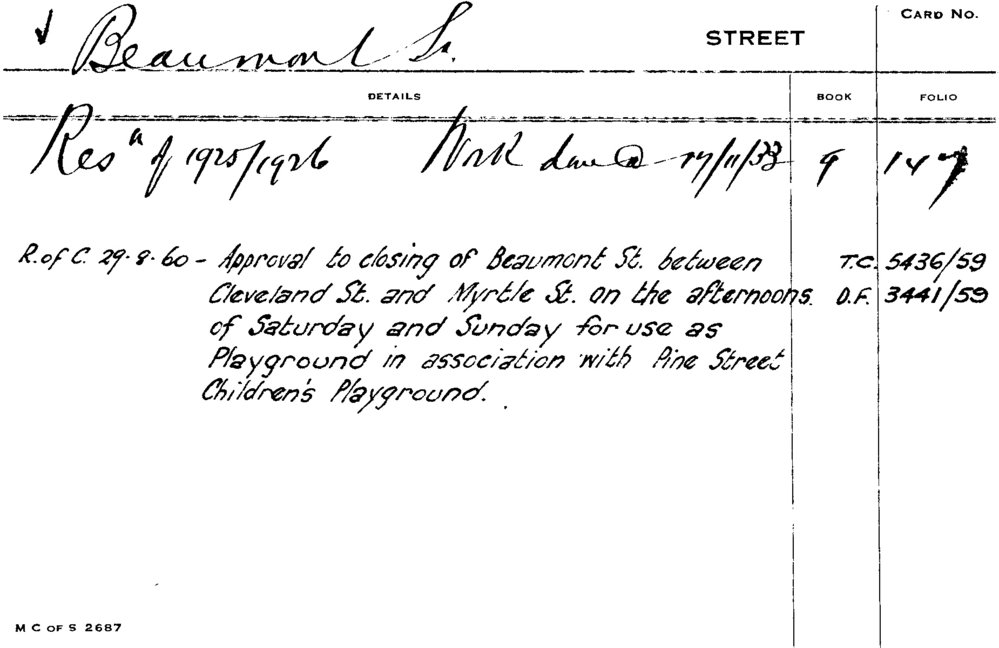 Beaumont St. STREET CARD NO.
DETAILS BOOK FOLIO
Resn of 1925/1926 Work done 17/11/33 9 147
R. of C. 29·8·60 - Approval to closing of Beaumont St. between T.C. 5436/59
Cleveland St. and Myrtle St. on the afternoons. D.F. 3441/59
of Saturday and Sunday for use as
Playground in association with Pine Street
Children's Playground.
M C OF S 2687